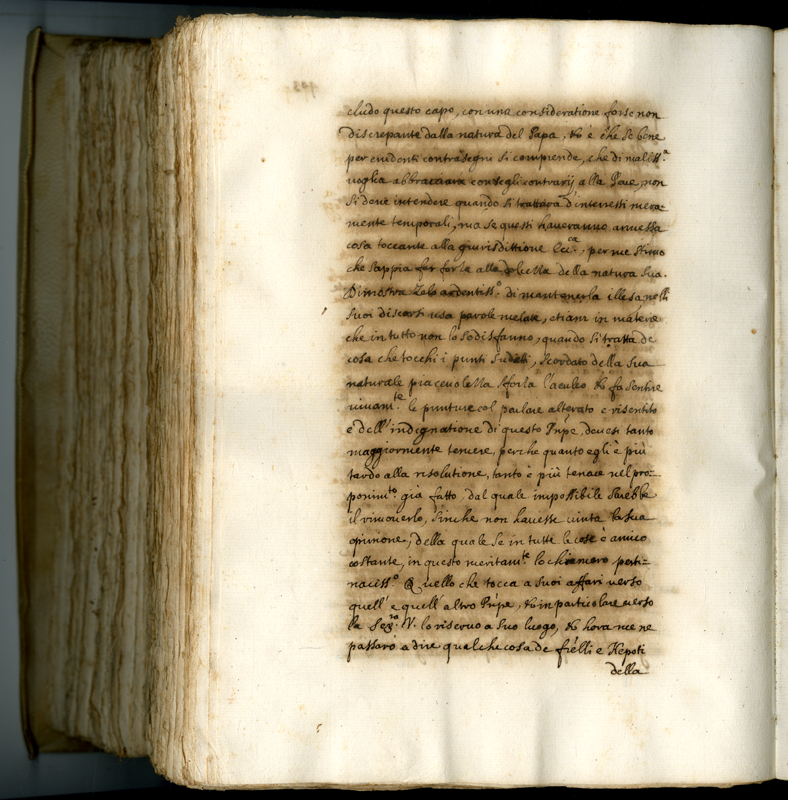 cludo questo capo, con una consideratione forse non
discrepante dalla natura del Papa, et è che se bene
per euidenti contrasegni si comprende, che di maliss.ª
uoglia abbracciare consegli contrarij alla Pace, non
si deue intendere quando si trattarà d'interessi mera=
mente temporali, ma se questi haueranno annessa
cosa toccante alla giurisdittione Ecc.ca, per me stimo
che sappia far forza alla dolcezza della natura sua.
Dimostra Zelo ardentiss.º di mantenerla illesa, nelli
suoi discorsi usa parole melate, etiam in materie
che in tutto non lo sodisfanno, quando si tratta de
cosa che tocchi i punti sudetti, scordato della sua
naturale piaceuolezza sforza l'aculeo et fa sentire
uiuam.te le punture col parlare alterato e risentito
e dell'indignatione di questo Prnpe, deuesi tanto
maggiormente temere, perche quanto egli è più
tardo alla risolutione, tanto è più tenace nel pro=
ponim.to già fatto, dal quale impossibile sarebbe
il rimouerlo, sinche non hauesse uinta la sua
opinione, della quale se in tutte le cose è amico
costante, in questo meritam.te lo chiamero perti=
naciss.º Quello che tocca a suoi affari uerso
quell' e quell'altro Prnpe, et in particolare uerso
la Ser.ra V. lo riseruo a suo luogo, et hora me ne
passarò a dire qualche cosa de frèlli e Nepoti
della